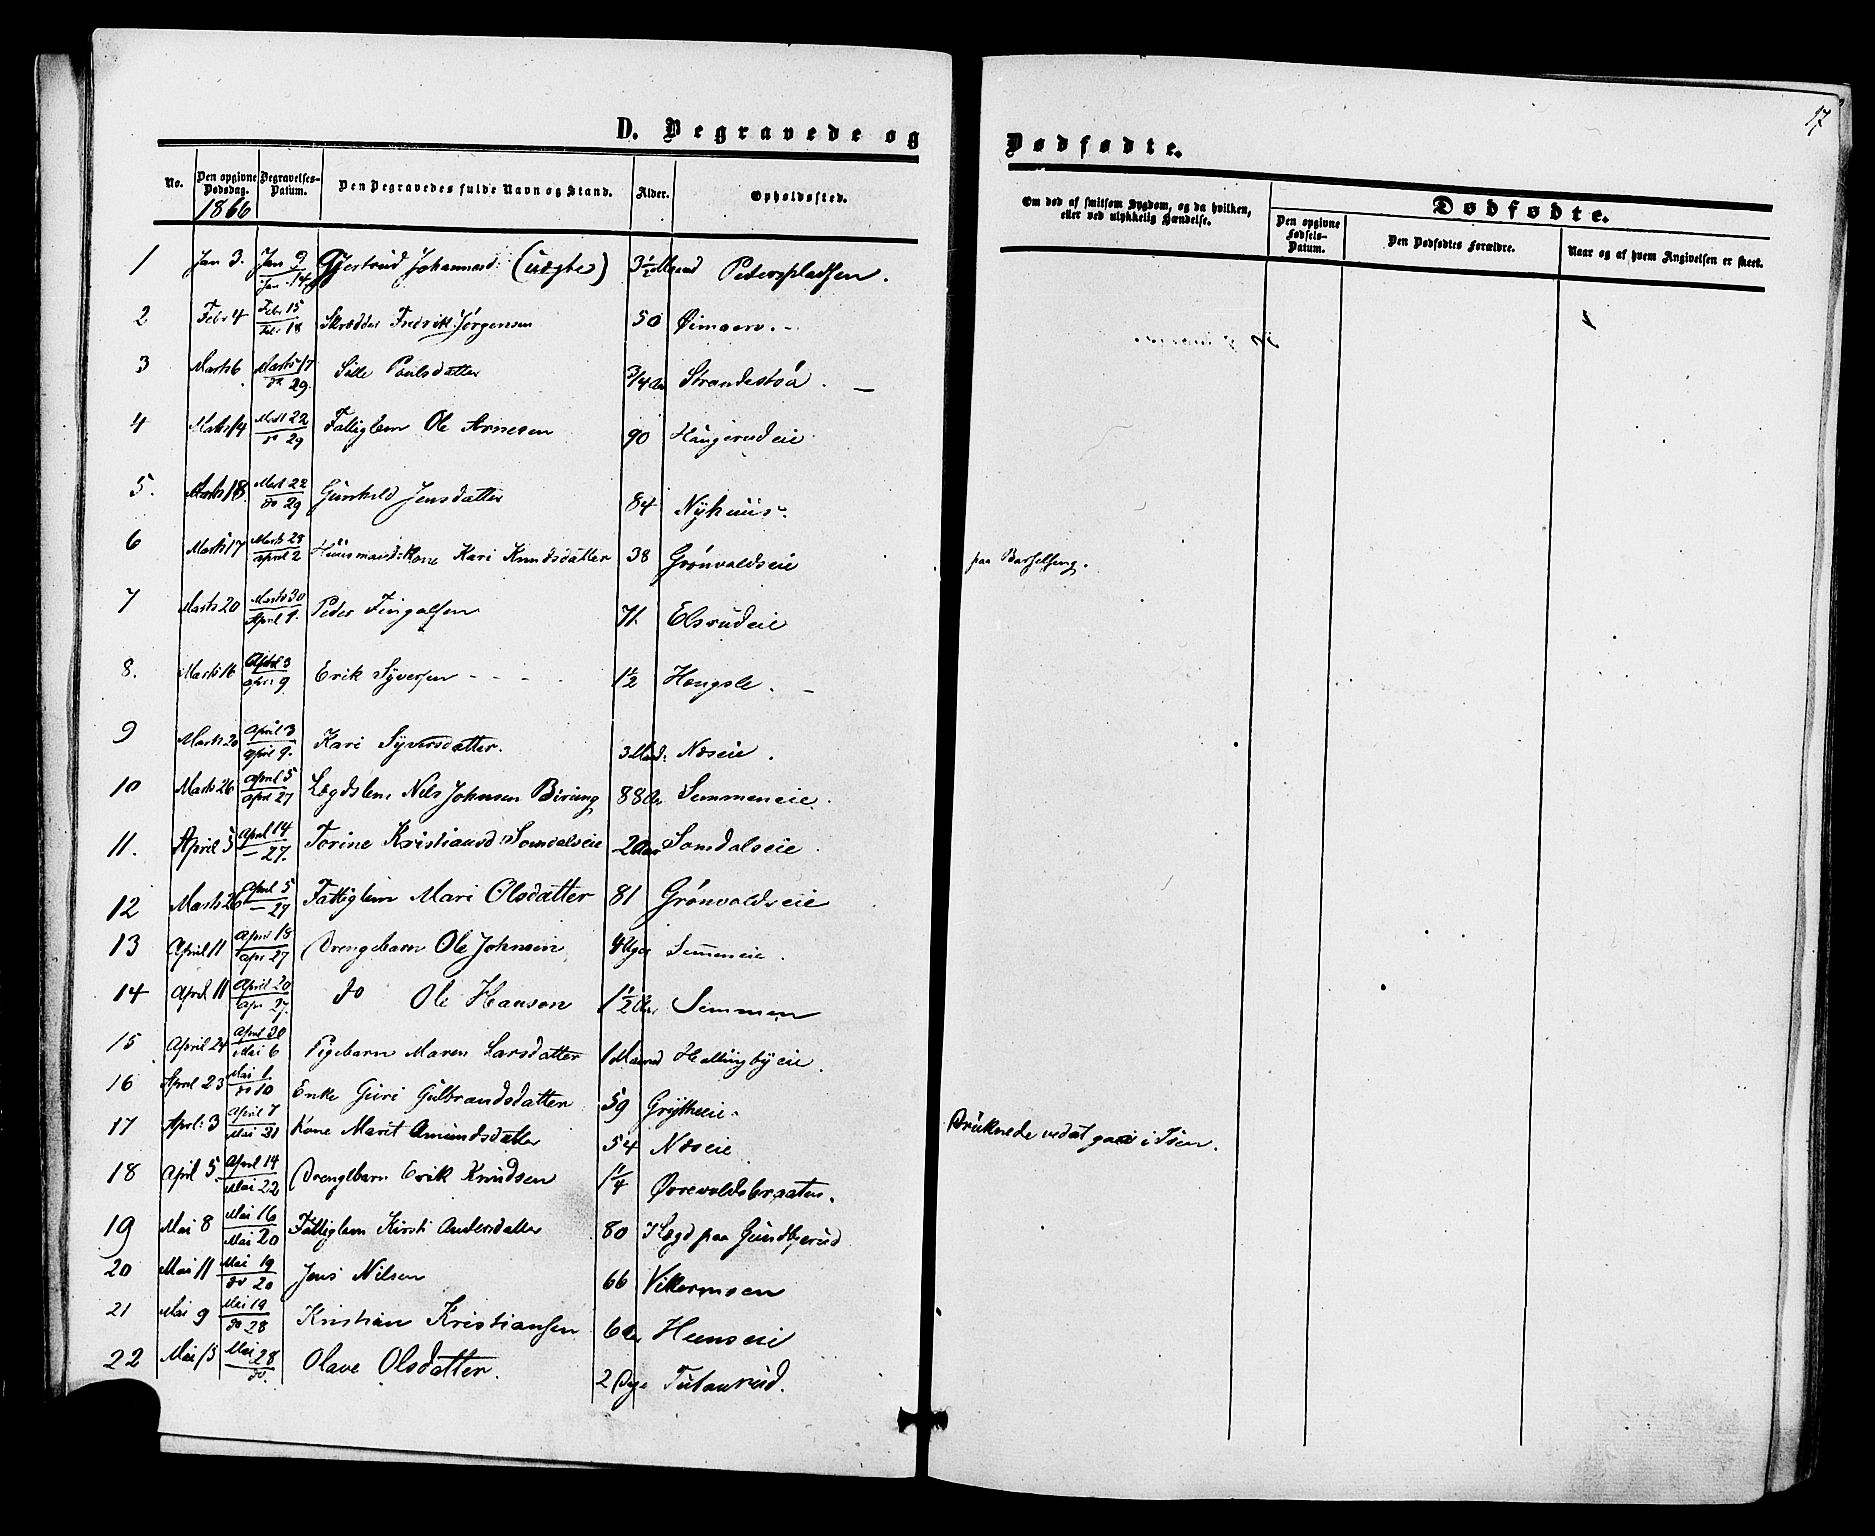 17
D. Begravede og Dødfødte.
No. Den opgivne Dødsdag. Begravelses-Datum. Den Begravedes fulde Navn og Stand. Alder. Opholdssted.
Om død af smitsom Sygdom, og da hvilken, eller ved ulykkelig Hændelse.
Dødfødte.
Den opgivne Fødsels-Datum. Den Dødfødtes Forældre. Naar og af hvem Angivelsen er skeet.
1866
1 Jan 3. Jan 9 Jan 14 Gjertrud Johannesd: (uægte) 3½ Maaned Pederspladsen.
2 Febr 4 Febr 15 Febr 18 Skrædder Fredrik Jørgensen 50
3 Marts 6 Marts 17 do 29. Paulsdatter 3/4 Aar
4 Marts 14 Mart 22 do 29 Fattiglem Ole Arnesen 90 Haugerudeie
5. Marts 18. Mart 22 do 29 Gunhild Jensdatter 84 Nyhuus.
6 Marts 17 Marts 28 april 2 Huusmands Kone Kari Knudsdatter 38 Grønvoldseie paa Barselseng.
7 Marts 20 Marts 30 April 9. Peder Fingalsen 71. Elsrudeie
8. Marts 16 April 3 april 9 Erik Syversen 1½ Hougsle.
9 Marts 20 April 3 april 9. Kari Syversdatter. 3 Maad: Næseie.
10 Marts 26 April 5 april 27 Lægdslem Nils Johnsen 88 Aar Semmeneie.
11. April 5 April 14 – 27. Torine Kristiansd: Somdalseie 2 Aar Somdalseie.
12 Marts 26 April 5 – 27 Fattiglem Mari Olsdatter 81 Grønvoldseie
13 April 11 April 18 apr 27 Drengebarn Ole Johnsen 4 Uger Semmeneie.
14 April 11 April 20 apr 27. do Ole Hansen 1½ Aar Semmen
15 April 24 April 30 Mai 6 Pigebarn Maren Larsdatter 1 Maaned Hallingbyeie.
16 April 23 Mai 1 do 10 Enke Guri Gulbrandsdatter 59 Grytheeie.
17 April: 3 April 7 Mai 21 Kone Marit Amundsdatter 54 Næseie Druknede ved at gaa i Isen.
18 April 5. April 14 Mai 22 Drengebarn Erik Knudsen 1¼ Ørrevoldsbraaten.
19 Mai 8 Mai 16 Mai 20 Fattiglem Kirsti Andersdatter 80 Lægd paa Gundbjerud
20 Mai 11 Mai 19 do 20 Jens Nilsen 66 Vikermoen
21 Mai 9 Mai 19 do 28 Kristian Kristiansen 6 Aar Heenseie
22 Mai 13 Mai 28 do. Olave Olsdatter. 2 Dage Tutanrud.